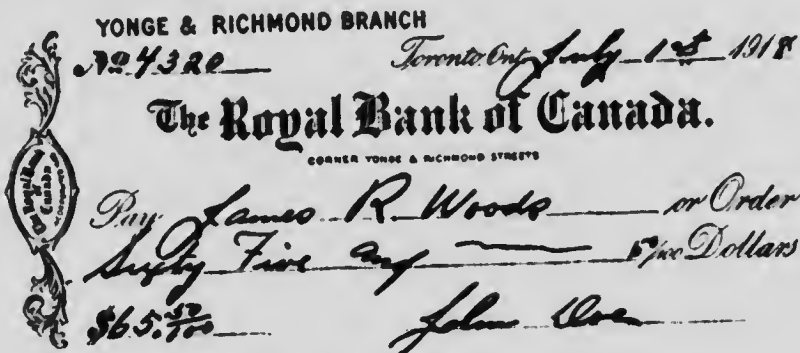 YONGE & RICHMOND BRANCH
No 4320 Toronto, Ont July 1st 1918
The Royal Bank of Canada.
CORNER YONGE & RICHMOND STREETS
The Royal Bank of Canada
Pay James R. Woods or Order
Sixty Five and 50/100 Dollars
$65.50/100 John Doe